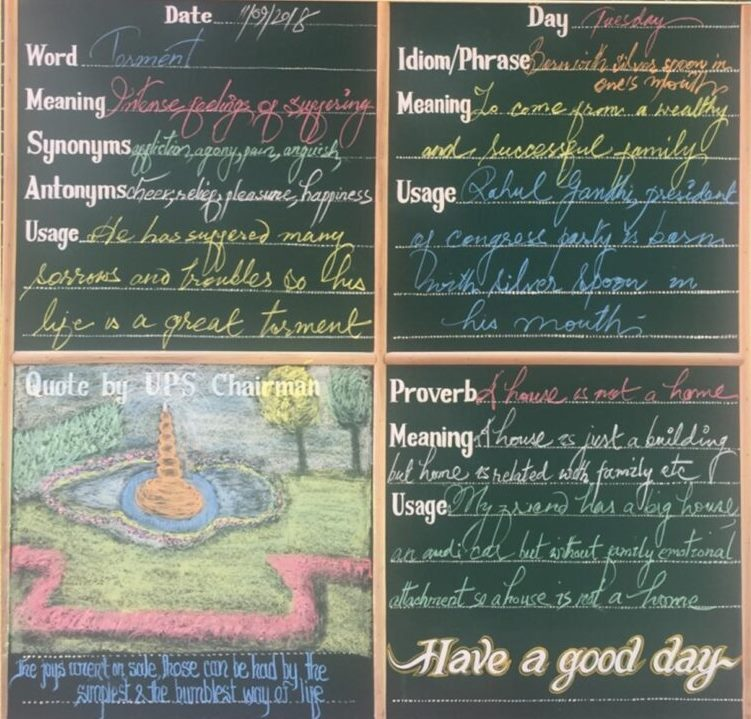 Date 11/09/2018
Word Torment
Meaning Intense feelings of suffering
Synonyms affliction, agony, pain, anguish,
Antonyms cheer, relief, pleasure, happiness
Usage He has suffered many
sorrows and troubles so his
life is a great torment
Day Tuesday
Idiom/Phrase Born with silver spoon in
one's mouth
Meaning To come from a wealthy
and successful family
Usage Rahul Gandhi, president
of congress party is born
with silver spoon in
his mouth
Quote by UPS Chairman
The joys aren't on sale, those can be had by the
simplest & the humblest way of life
Proverb A house is not a home
Meaning A house is just a building
but home is related with family etc
Usage My friend has a big house,
an audi car but without family emotional
attachment so a house is not a home
Have a good day